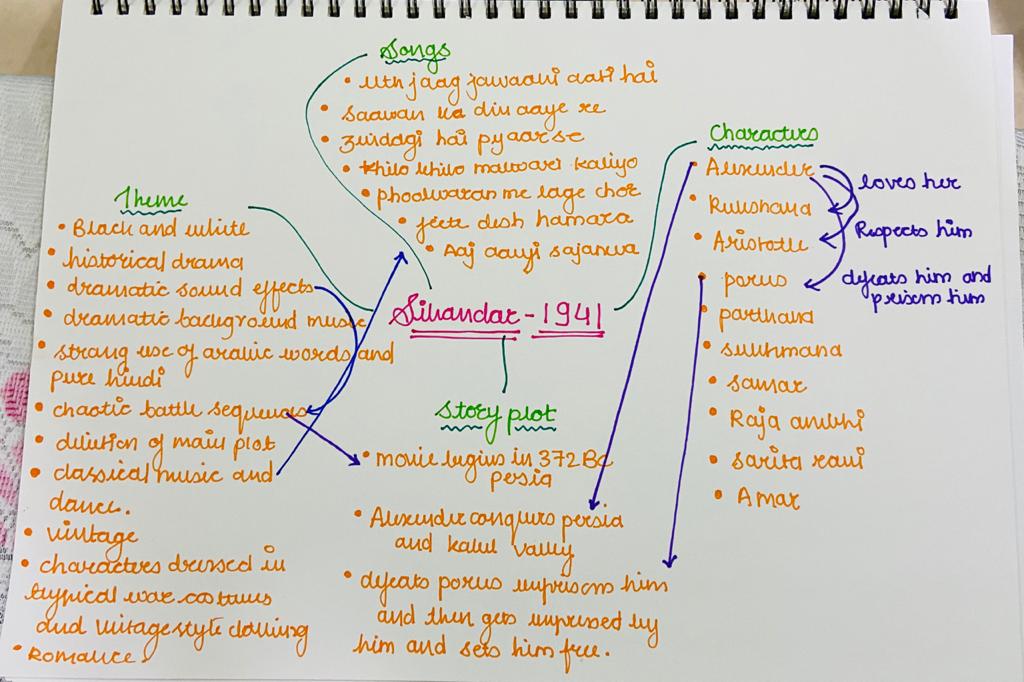 Songs
• Uth jaag jawaani aati hai
• Saawan ka din aaye re
• Zindagi hai pyaar se
• Khilo khilo matwari kaliyo
• phoolwaran me lage chor
• jeete desh hamara
• Aaj aayi sajanwa
Characters
• Alexender
• Rukshana
• Aristotle
• porus
• parthana
• sukhmana
• samar
• Raja ambhi
• sarita rani
• Amar
loves her
Respects him
defeats him and
prisons him
Theme
• Black and white
• historical drama
• dramatic sound effects
• dramatic background music
• strong use of arabic words and
pure hindi
• chaotic battle sequences
• dilution of main plot
• classical music and
dance.
• vintage
• characters dressed in
typical war costums
and vintage style clothing
• Romance.
Sikandar - 1941
Story plot
• movie begins in 372 BC
persia
• Alexender conquers persia
and kabul valley
• defeats porus imprisons him
and then gets impressed by
him and sets him free.